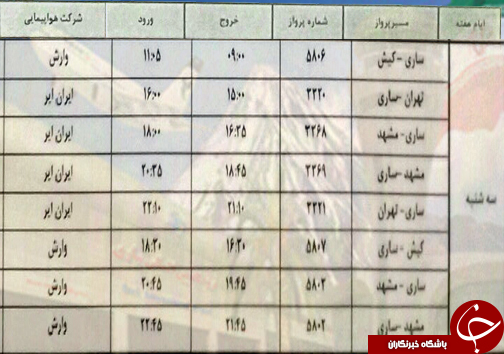 ایام هفته مسیرپرواز شماره پرواز خروج ورود شرکت هواپیمایی
ساری - کیش ۵۸۰۶ ۰۹:۰۰ ۱۱:۰۵ وارش
تهران - ساری ۳۳۲۰ ۱۵:۰۰ ۱۶:۰۰ ایران ایر
ساری - مشهد ۳۲۶۸ ۱۶:۳۵ ۱۸:۰۰ ایران ایر
مشهد - ساری ۳۲۶۹ ۱۸:۴۵ ۲۰:۳۵ ایران ایر
سه شنبه
ساری - تهران ۳۳۲۱ ۲۱:۱۰ ۲۲:۱۰ ایران ایر
کیش - ساری ۵۸۰۷ ۱۶:۳۰ ۱۸:۳۰ وارش
ساری - مشهد ۵۸۰۲ ۱۹:۴۵ ۲۰:۴۵ وارش
مشهد - ساری ۵۸۰۲ ۲۱:۴۵ ۲۲:۴۵ وارش
باشگاه خبرنگاران